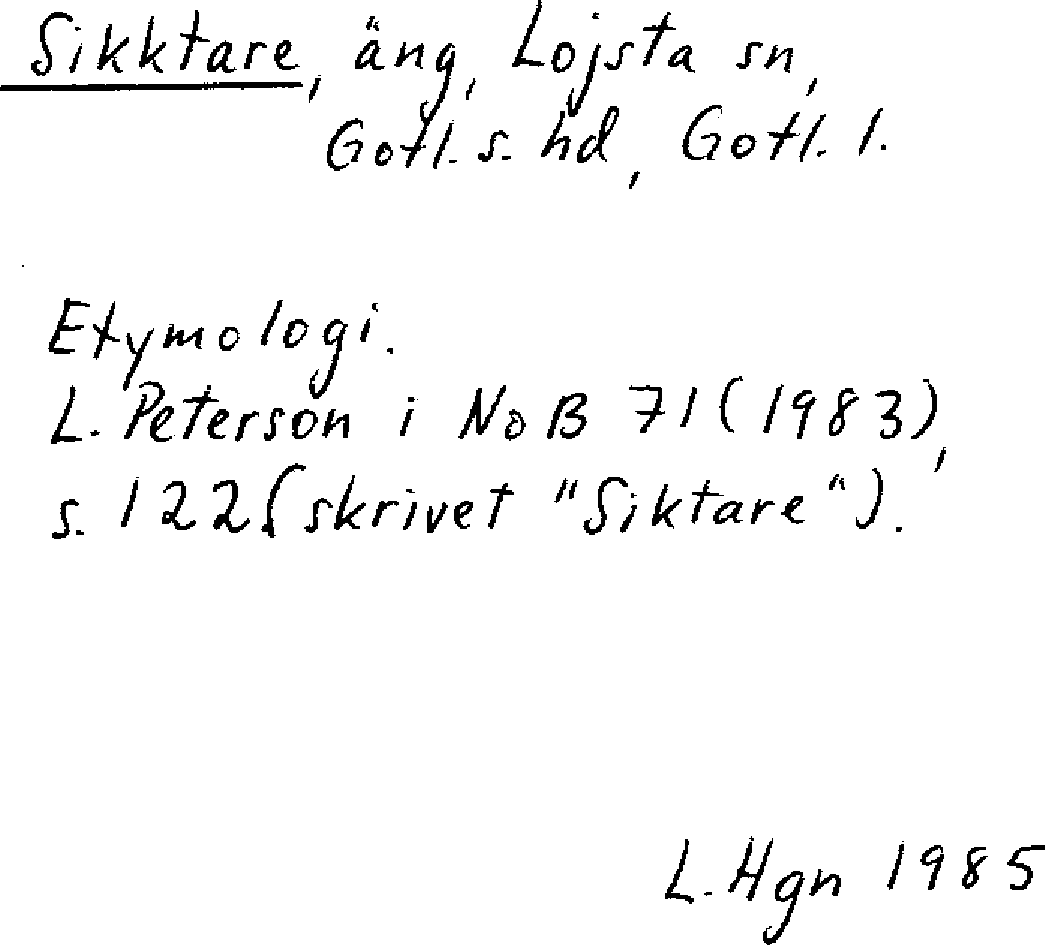 Sikktare, äng, Lojsta sn,
Gotl. s. hd, Gotl. l.
Etymologi.
L. Peterson i NoB 71 (1983),
s. 122 (skrivet "Siktare").
L. Hgn 1985